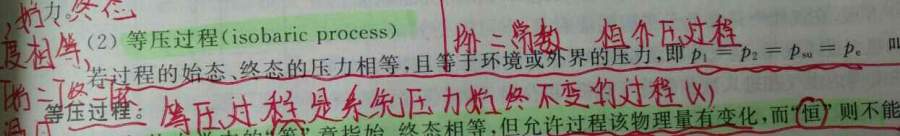 力。终态
度相等
(2) 等压过程(isobaric process)
外=常数 恒外压过程
若过程的始态、终态的压力相等,且等于环境或外界的压力,即 p₁ = p₂ = pₛᵤ = pₑ 叫
等压过程。等压过程是系统压力始终不变的过程(X)
意指始、终态相等,但允许过程该物理量有变化,而“恒”则不能